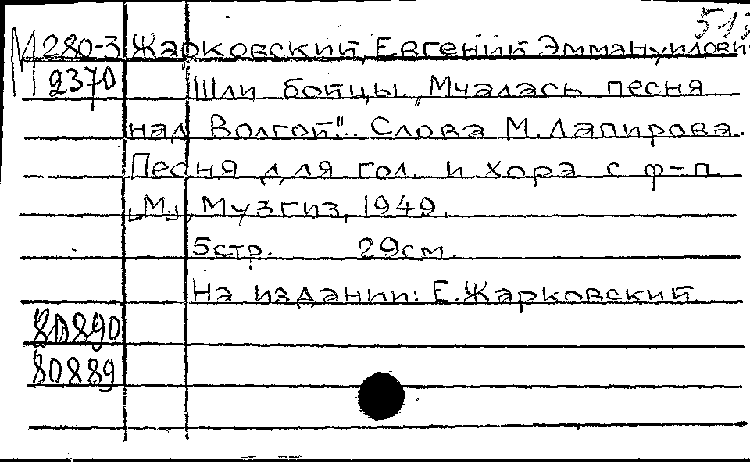 513
М 280-3 Жарковский, Евгений Эммануилович
2370 Шли бойцы „Мчалась песня
над Волгой". Слова М. Лапирова.
Песня для гол. и хора с ф-п.
„М.", Музгиз, 1949.
5 стр. 29 см.
На издании: Е. Жарковский
80890
80889